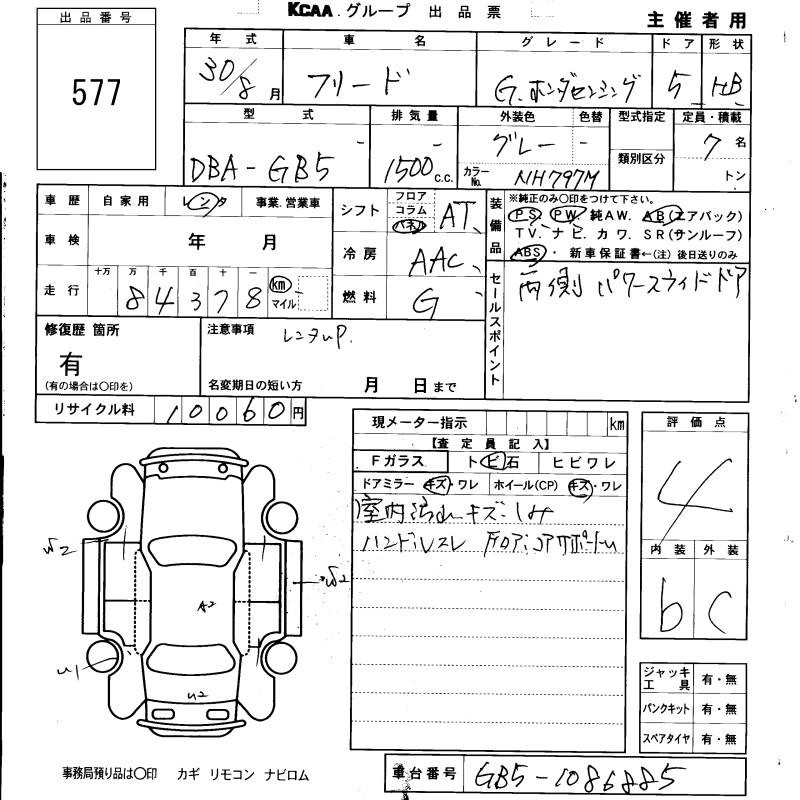 KCAA グループ 出品票
主催者用
出品番号
577
年式 車名 グレード ドア 形状
30/8月 フリード G.ホンダセンシング 5 HB
型式 排気量 外装色 色替 型式指定 定員・積載
DBA-GB5 1500c.c. グレー - 類別区分 7名
カラーNo. NH797M トン
車歴 自家用 レンタ 事業.営業車
シフト フロア コラム パネル AT
装備品 ※純正のみ〇印をつけて下さい。
PS PW 純AW. AB(エアバック)
TV.ナビ.カワ.SR(サンルーフ)
ABS・新車保証書←(注)後日送りのみ
車検 年 月
冷房 AAC
走行 十万 万 千 百 十 一
84378 km マイル
燃料 G
セールスポイント 両側パワースライドドア
修復歴 箇所
有
(有の場合は〇印を)
注意事項 レンタup.
名変期日の短い方 月 日まで
リサイクル料 10060円
現メーター指示 km
【査定員記入】
Fガラス トビ石 ヒビワレ
ドアミラー キズ・ワレ ホイール(CP) キズ・ワレ
室内汚れキズシミ
ハンドルスレ
評価点
4
内装 外装
b C
W2
W2
A2
U1
U2
ジャッキ工具 有・無
パンクキット 有・無
スペアタイヤ 有・無
事務局預り品は〇印 カギ リモコン ナビロム
車台番号 GB5-1086885